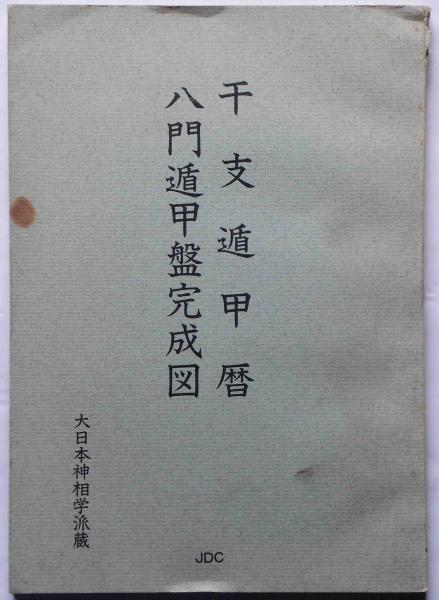 干支遁甲暦
八門遁甲盤完成図
大日本神相学派蔵
JDC